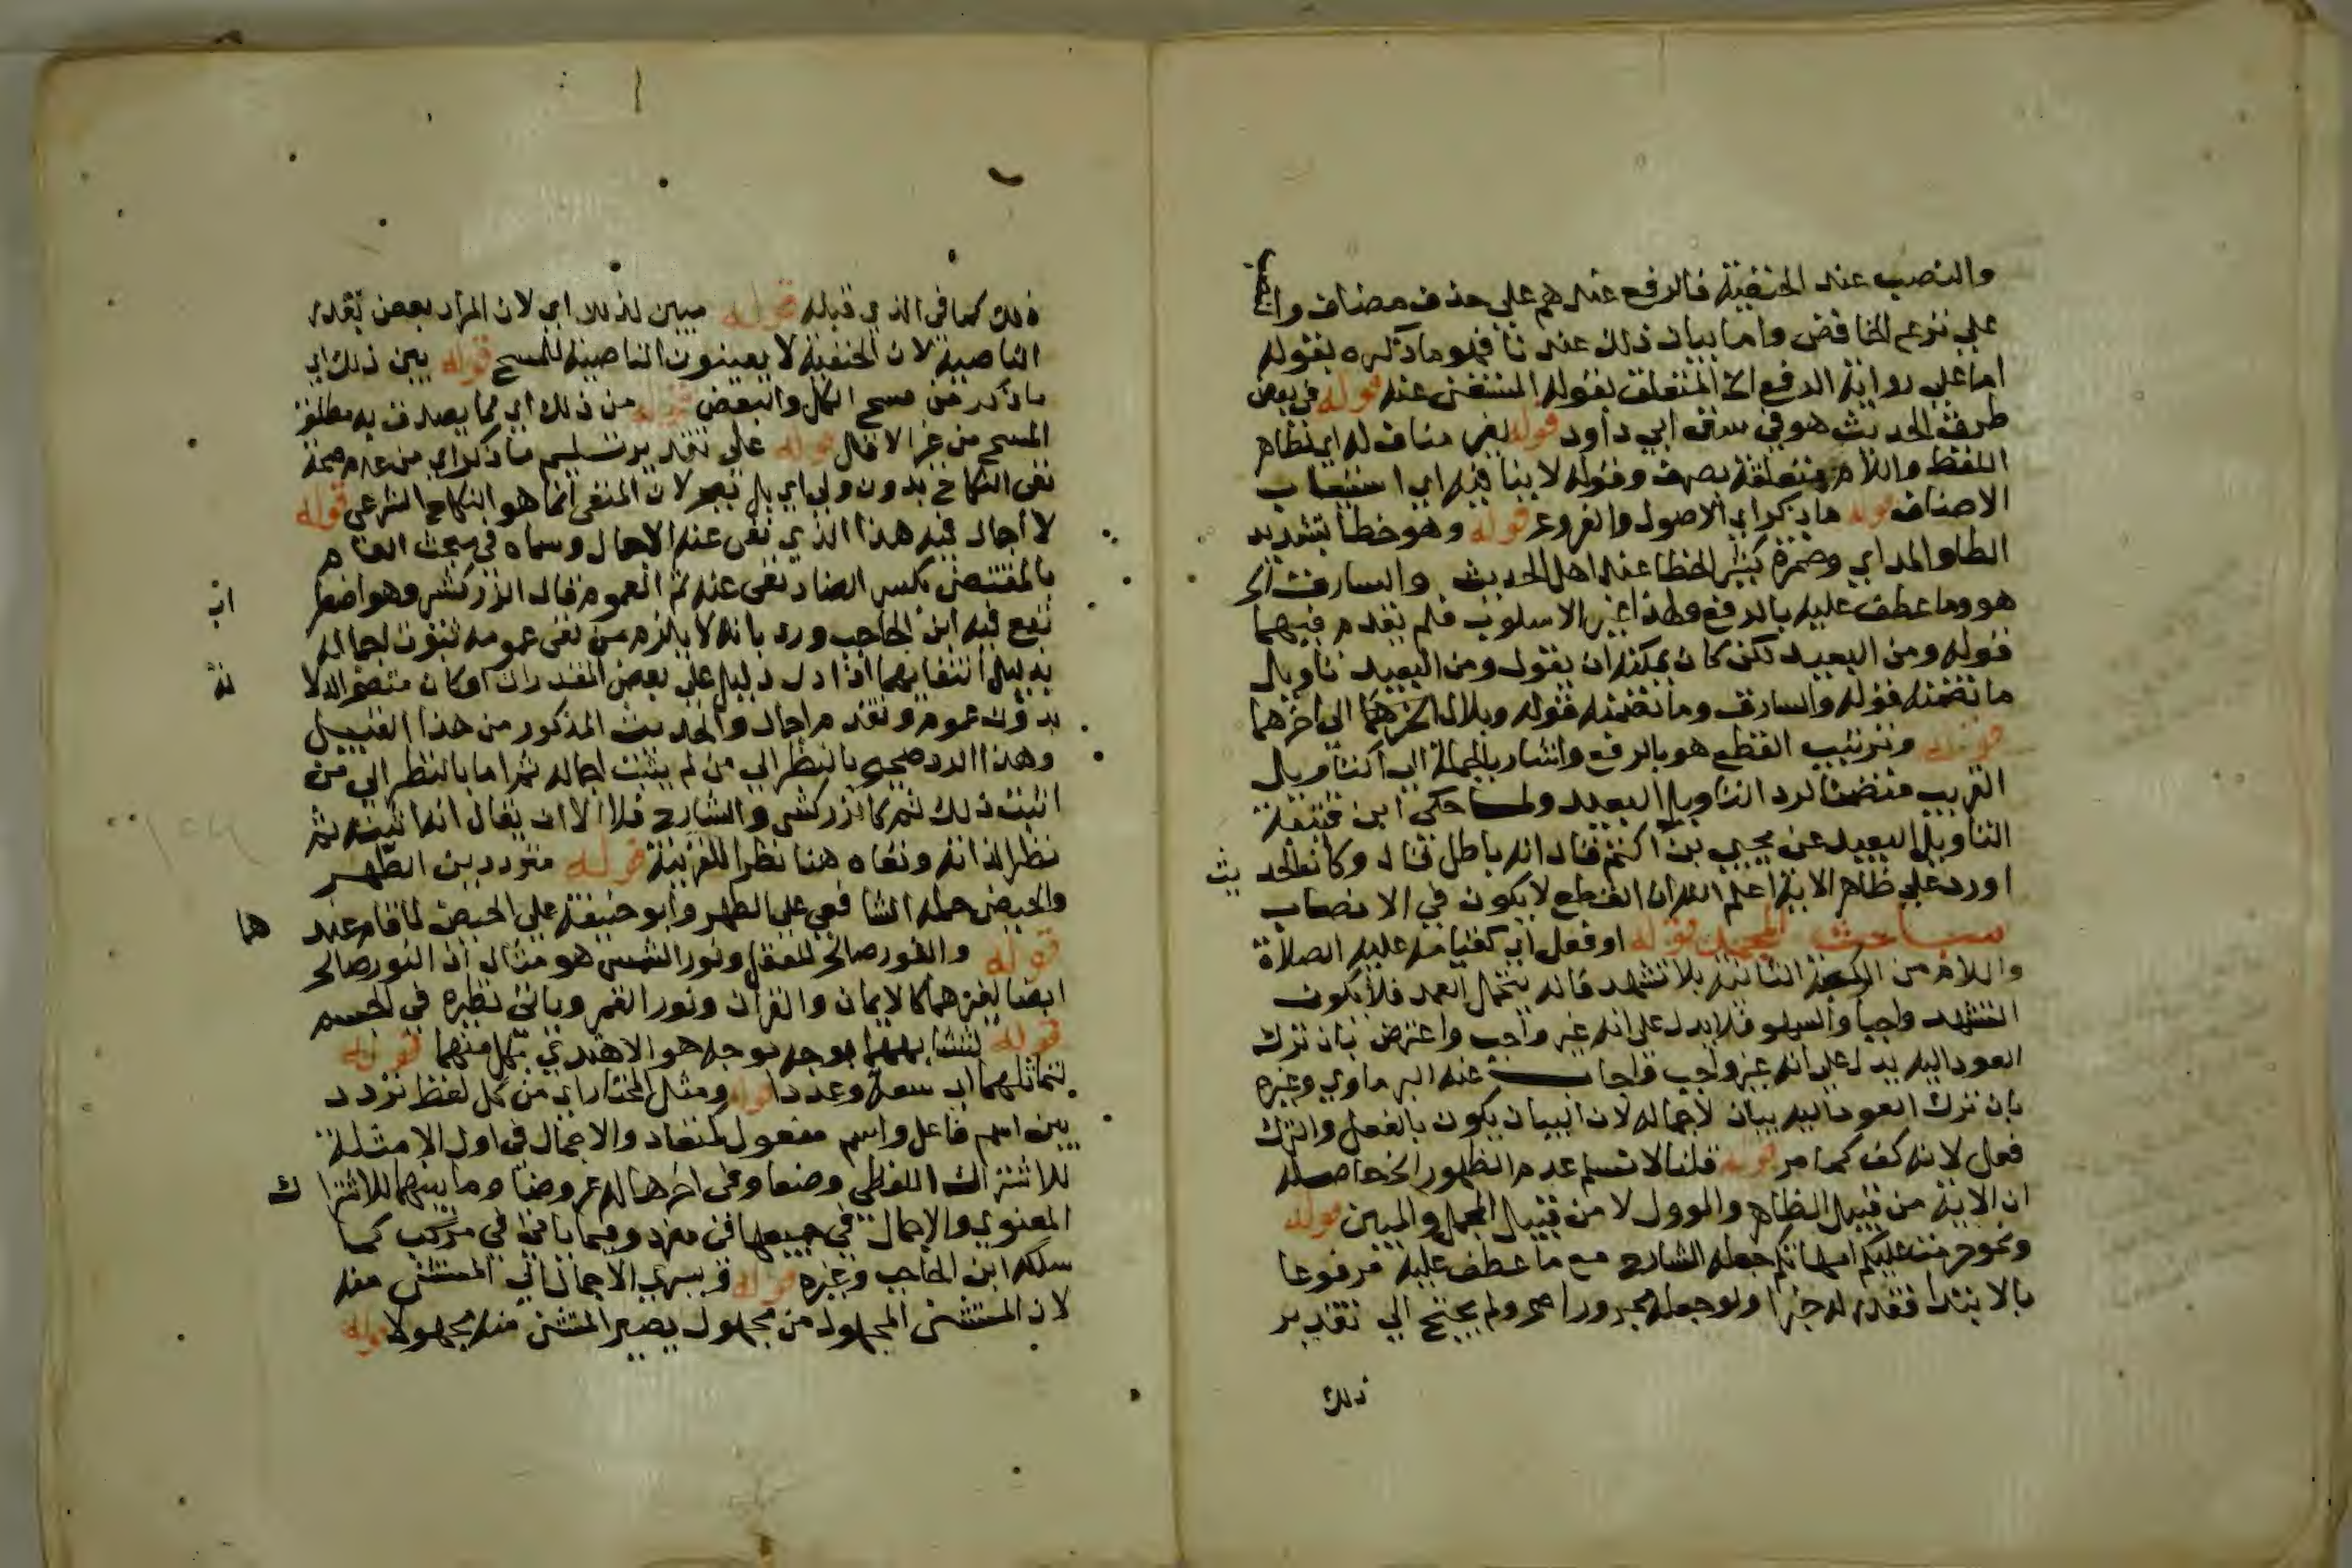 والنصب عند الحنفية فالرفع عندهم على حذف مضاف والنصب
على نزع الخافض واما بيان ذلك عندنا فهو ما ذكره بقوله
اما على رواية الرفع الخ المتعلق بقوله المستغنى عنه قوله في بعض
طرق الحديث هو في سنن ابي داود قوله لغير مناف له اي لظاهر
اللفظ واللام متعلقة بصرف وقوله لا ينافيه اي استيعاب
الاصناف قوله ما ذكر اي الاصول والفروع قوله وهو خطا بتشديد
الطا والمد اي وضمرة كثير الخطا عند اهل الحديث والسارق الخ
هو وما عطف عليه بالرفع ولهذا غير الاسلوب فلم يقدم فيهما
قوله ومن البعيد لكن كان يمكنه ان يقول ومن البعيد تاويل
ما تضمنه قوله والسارق وما تضمنه قوله وبلال الى اخرهما
قوله وترتيب القطع هو بالرفع واشار بالجملة الى التاويل
القريب متضمنا لرد التاويل البعيد ولما حكى ابن قتيبة
التاويل البعيد عن يحيى بن اكثم قال انه باطل قال وكان الحديث
اورد على ظاهر الاية ثم اعلم الله ان القطع لا يكون في الا نصاب
مباحث المجمل قوله او فعل اي كقيامه عليه الصلاة
والسلام من الركعة الثانية بلا تشهد فانه يحتمل العمد فلا يكون
التشهد واجبا والسهو فلا يدل على انه غير واجب واعترض بان ترك
العود اليه يدل على انه غير واجب واجاب عنه البرماوي وغيره
بان ترك العود اليه بيان لاجماله لان البيان يكون بالفعل والترك
فعل لانه كف كما مر قوله قلنا لا نسلم عدم الظهور الخ حاصله
ان الاية من قبيل الظاهر والموول لا من قبيل المجمل والمبين قوله
ونحو حرمت عليكم امهاتكم جعله الشارح مع ما عطف عليه مرفوعا
بالابتدا فقدر له خبرا ولو جعله مجرورا صح ولم يحتج الى تقدير
ذلك
ذلك كما في الذي قبله قوله مبين لذلك اي لان المراد بعض بقدر
الناصية لان الحنفية لا يعينون الناصية للمسح قوله بين ذلك اي
ما ذكر من مسح الكل والبعض قوله من ذلك اي مما يصدق به مطلق
المسح من غير الاقل قوله على تقدير تسليم ما ذكر اي من عدم صحة
نفى النكاح بدون ولي اي بل نعم لان المنفى انما هو النكاح الشرعي قوله
لا اجال فيه هذا الذي نفى عنه الاجمال وسماه في مبحث العام
بالمقتضى بكسر الضاد نفى عنه ثم العموم قال الزركشي وهو اضطراب
تبع فيه ابن الحاجب ورد بانه لا يلزم من نفى عمومه ثبوت اجماله
بدليل انتفايهما اذا دل دليل على بعض المقدرات او كان متضح الدلالة
بدون عموم وتقدم اجال والحديث المذكور من هذا القبيل
وهذا الرد صحيح بالنظر الى من لم يثبت اجماله ثم اما بالنظر الى من
اثبت ذلك ثم كالزركشي والشارح فلا الا ان يقال انه اثبته ثم
نظرا لذاته ونفاه هنا نظرا للقرينة قوله متردد بين الطهر
والحيض حمله الشافعي على الطهر وابو حنيفة على الحيض لما قام عندهما
قوله والنور صالح للعقل ونور الشمس هو مثال اذ النور صالح
ايضا لغيرهما كالايمان والقران ونور القمر وياتي نظيره في الجسم
قوله لتشابههما بوجه بوجه هو الاهتدي بكل منهما قوله
لتماثلهما اي سعة وعددا قوله ومثل المختار اي من كل لفظ تردد
بين اسم فاعل واسم مفعول كمنقاد والاجمال في اول الامثلة
للاشتراك اللفظي وضعا وفي اخرها له عروضا وما بينهما للاشتراك
المعنوي والاجمال في جميعها في مفرد وفيما ياتي في مركب كما
سلكه ابن الحاجب وغيره قوله ويسري الاجمال الى المستثنى منه
لان المستثنى المجهول من مجهول يصير المستثنى منه مجهولا قوله